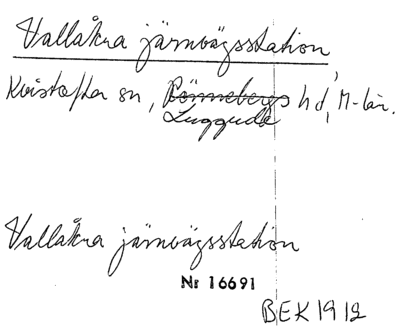 Vallåkra järnvägsstation
Kvistofta sn, Rönnebergs hd, M-län.
Luggude
Vallåkra järnvägsstation
Nr 16691
BEK 1912